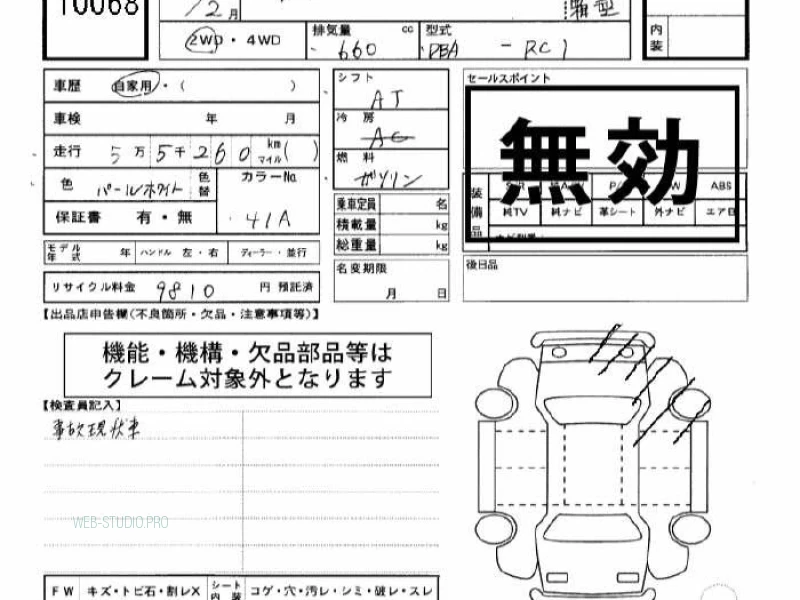 10068
12月
箱型
2WD・4WD
排気量 cc
660
型式
DBA - RC1
内装
車歴 自家用・( )
車検 年 月
走行 5万5千260 km マイル ( )
色 パールホワイト 色替
カラーNo.
41A
保証書 有・無
モデル年式 年 ハンドル 左・右 ディーラー・並行
リサイクル料金 9810 円 預託済
シフト
AT
冷房
AC
燃料
ガソリン
乗車定員 名
積載量 kg
総重量 kg
名変期限
月 日
セールスポイント
無効
装備品
ABS
純TV 純ナビ 革シート 外ナビ エアB
後日品
【出品店申告欄(不良箇所・欠品・注意事項等)】
機能・機構・欠品部品等は
クレーム対象外となります
【検査員記入】
事故現状車
WEB-STUDIO.PRO
FW キズ・トビ石・割レX シート内装 コゲ・穴・汚レ・シミ・破レ・スレ